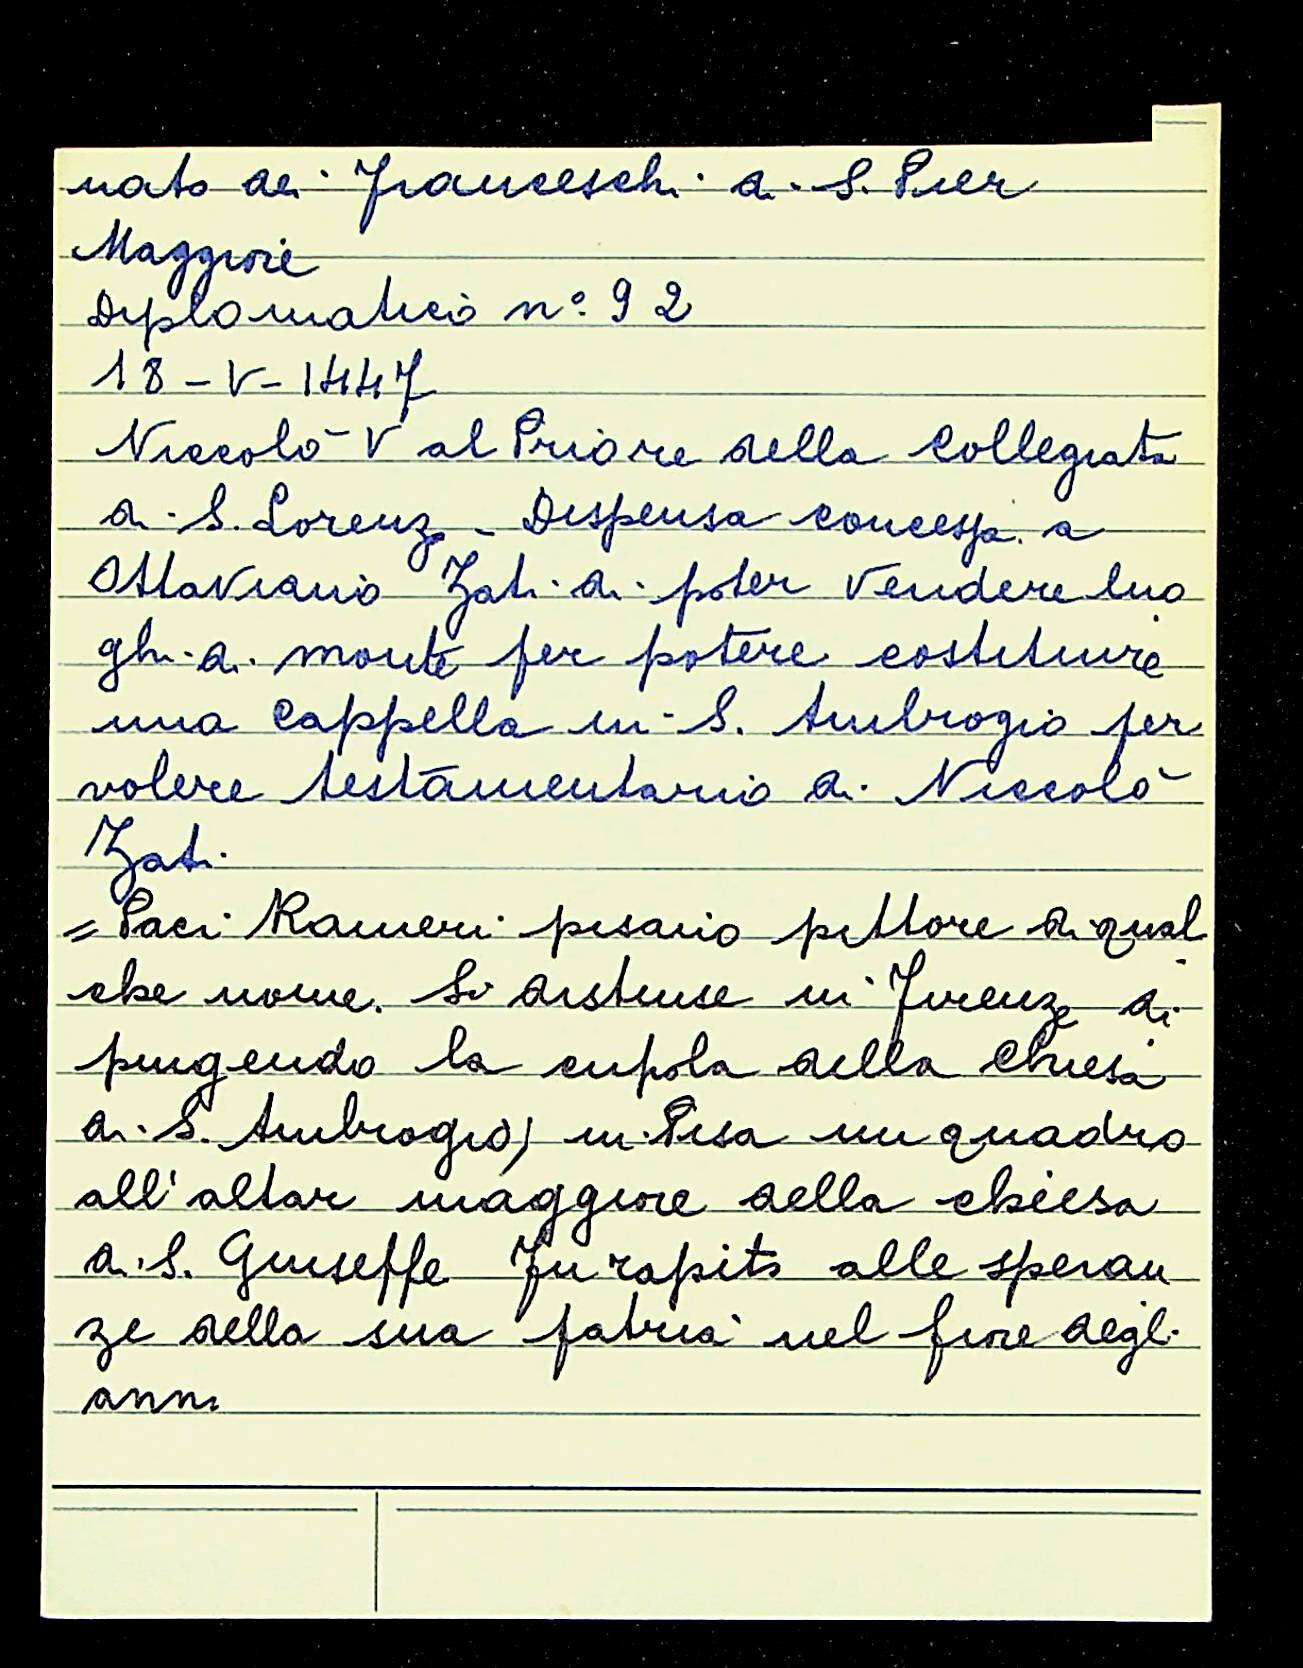 nato dei Franceschi di S. Pier
Maggiore
Diplomatico n° 92
18-V-1447
Niccolò V al Priore della Collegiata
di S. Lorenzo - Dispensa concessa a
Ottaviano Zati di poter vendere luo
ghi di monte per potere costituire
una cappella in S. Ambrogio per
volere testamentario di Niccolò
Zati.
= Paci Ranieri pisano pittore di qual
che nome. Si distinse in Firenze di
pingendo la cupola della Chiesa
di S. Ambrogio, in Pisa un quadro
all'altar maggiore della chiesa
di S. Giuseppe Fu rapito alle speran
ze della sua patria nel fiore degli
anni